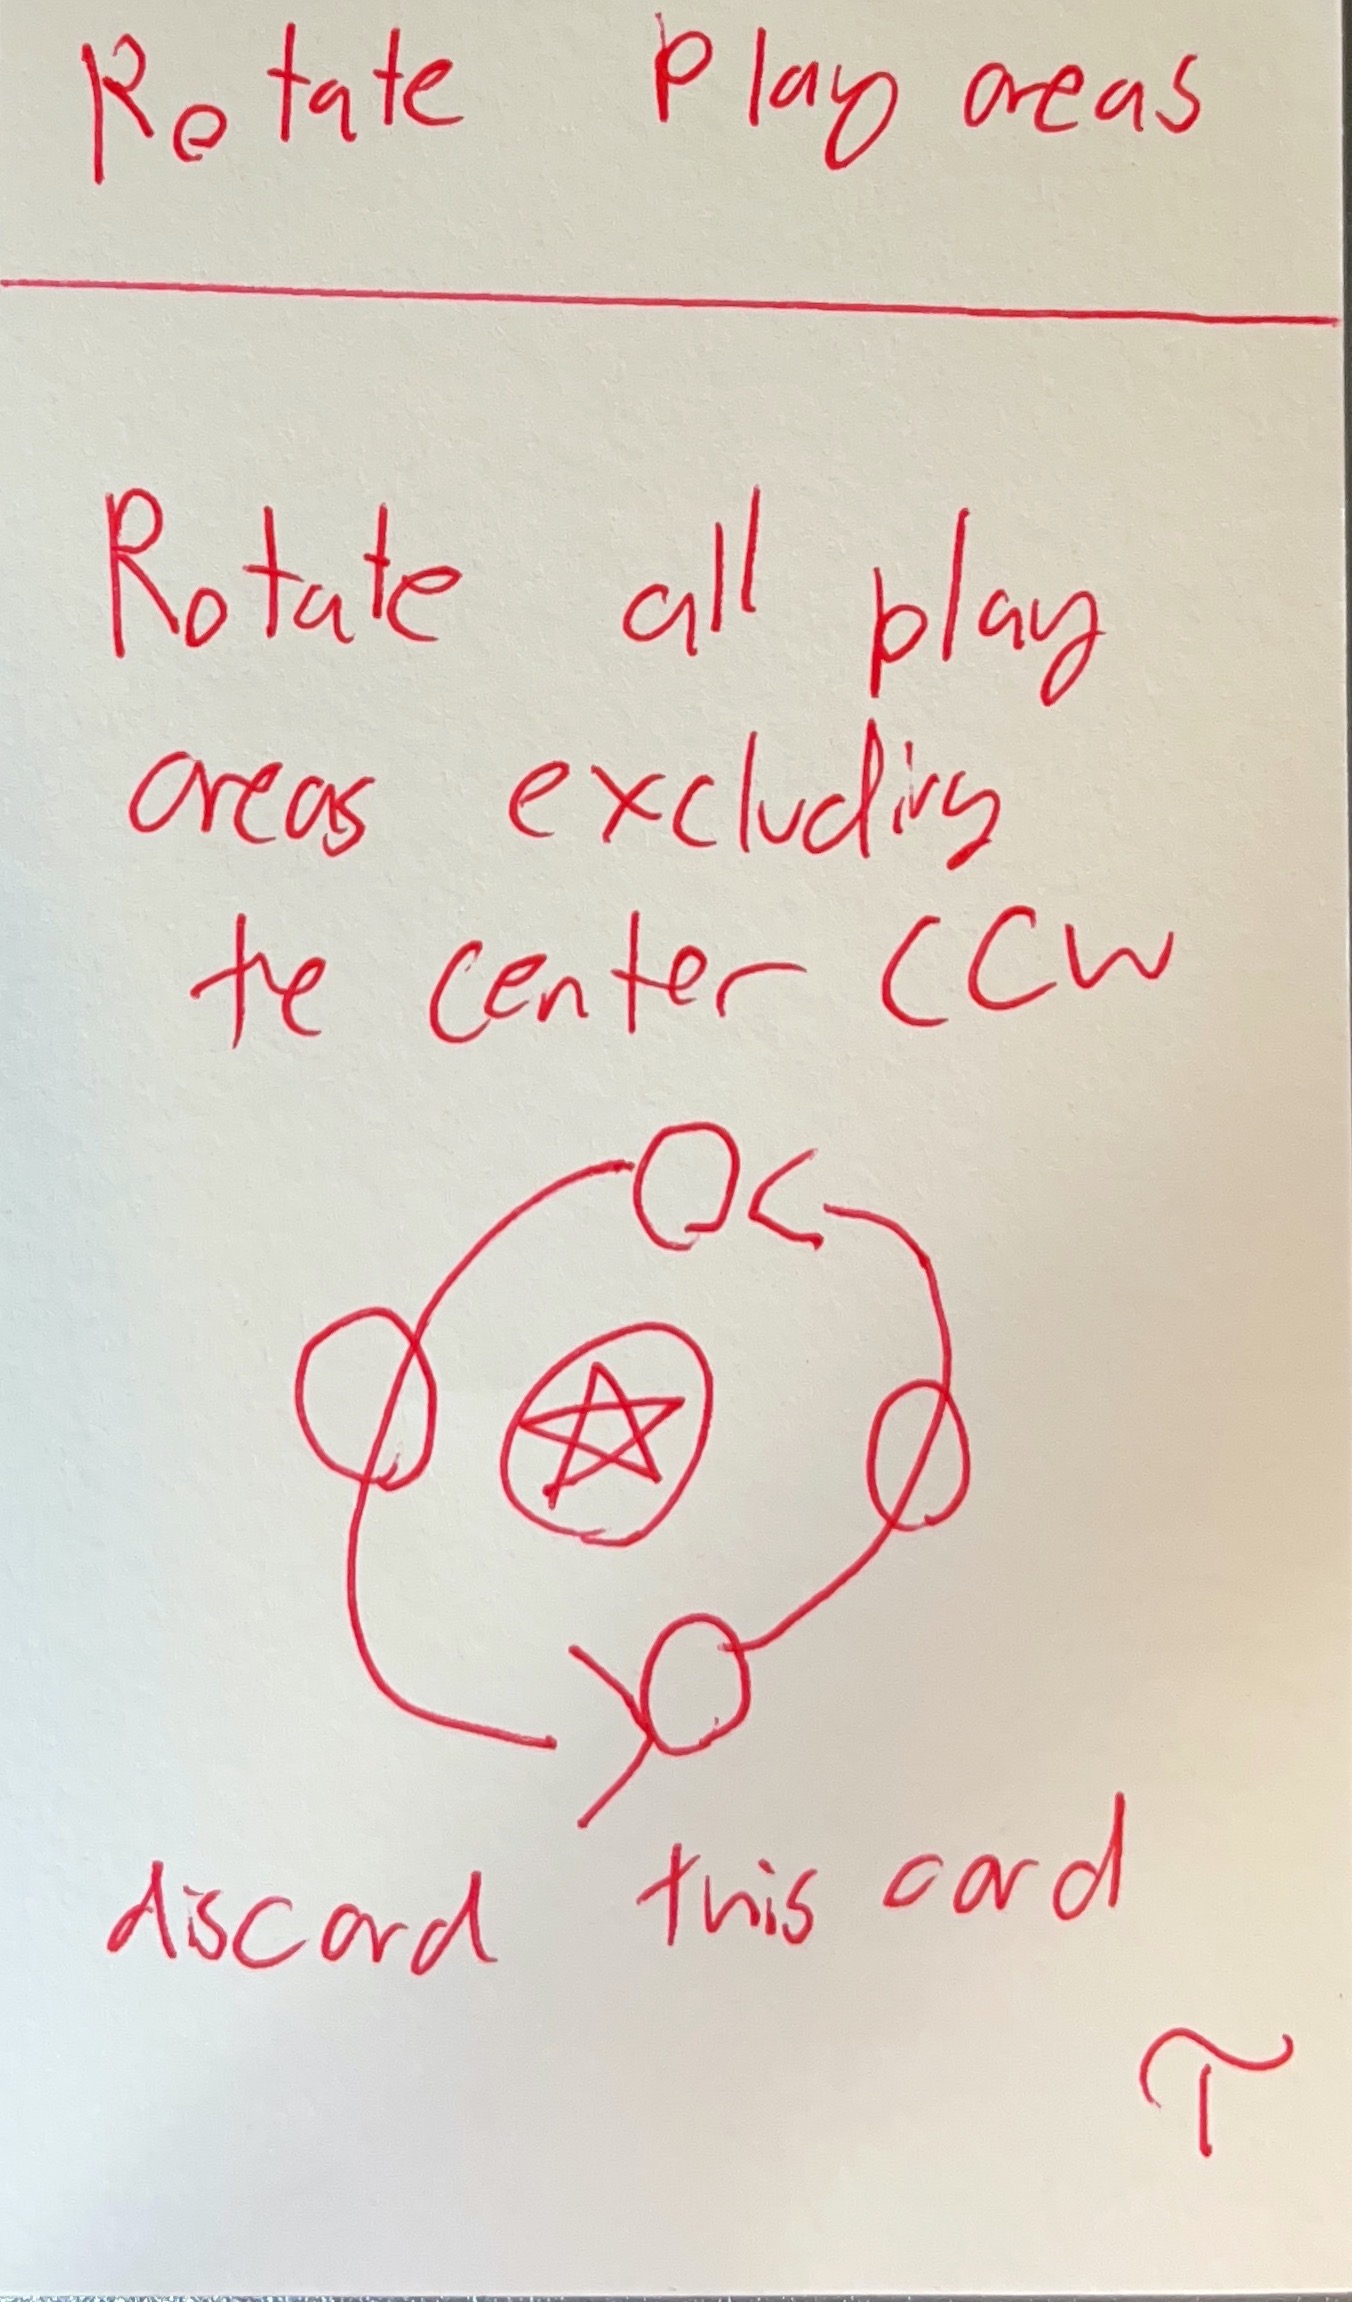 Rotate Play areas
Rotate all play
areas excluding
te center CCW
discard this card
T